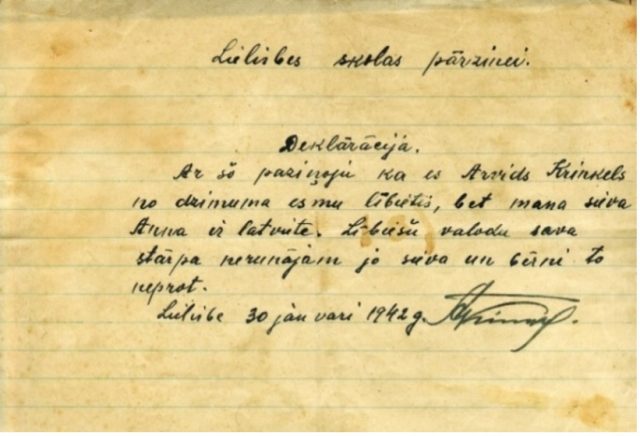 Lielirbes skolas pārzinei.
Deklārācija.
Ar šo paziņoju ka es Arvids Krinkels
no dzimuma esmu lībietis, bet mana sieva
Anna ir latviete. Lībiešu valodu sava
stārpa nerunājam jo sieva un bērni to
neprot.
Lielirbe 30 janvari 1942 g.